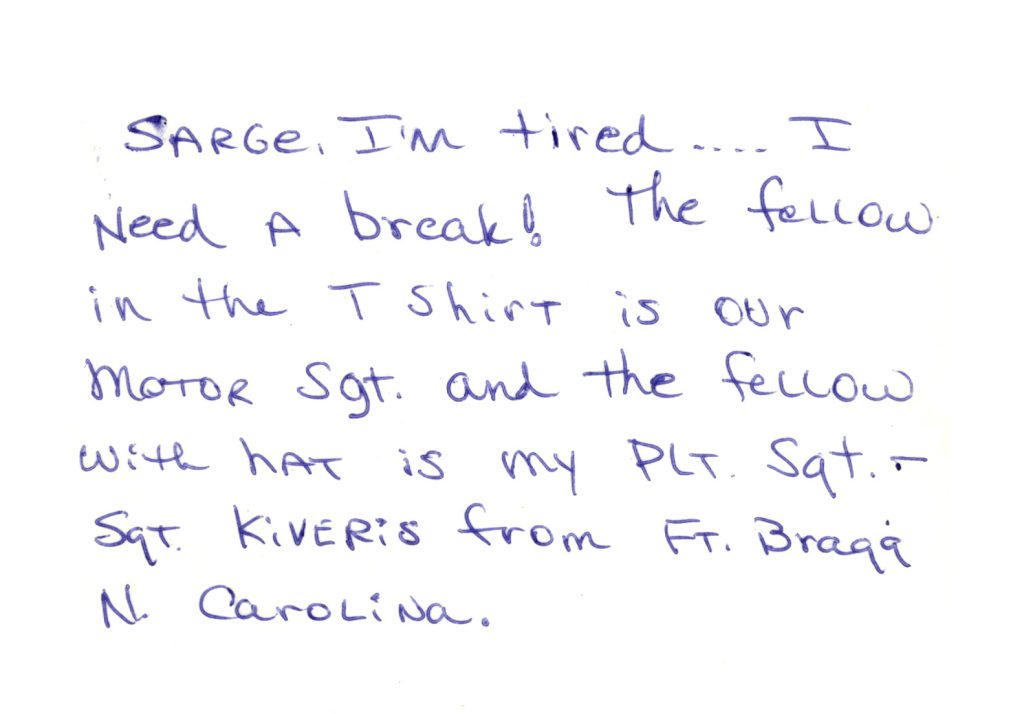 SARGE. I'm tired.... I
Need A break! The fellow
in the T Shirt is our
MOTOR Sgt. and the fellow
with hAT is my PLT. Sgt. -
Sgt. KiVERiS from FT. Bragg
N. Carolina.